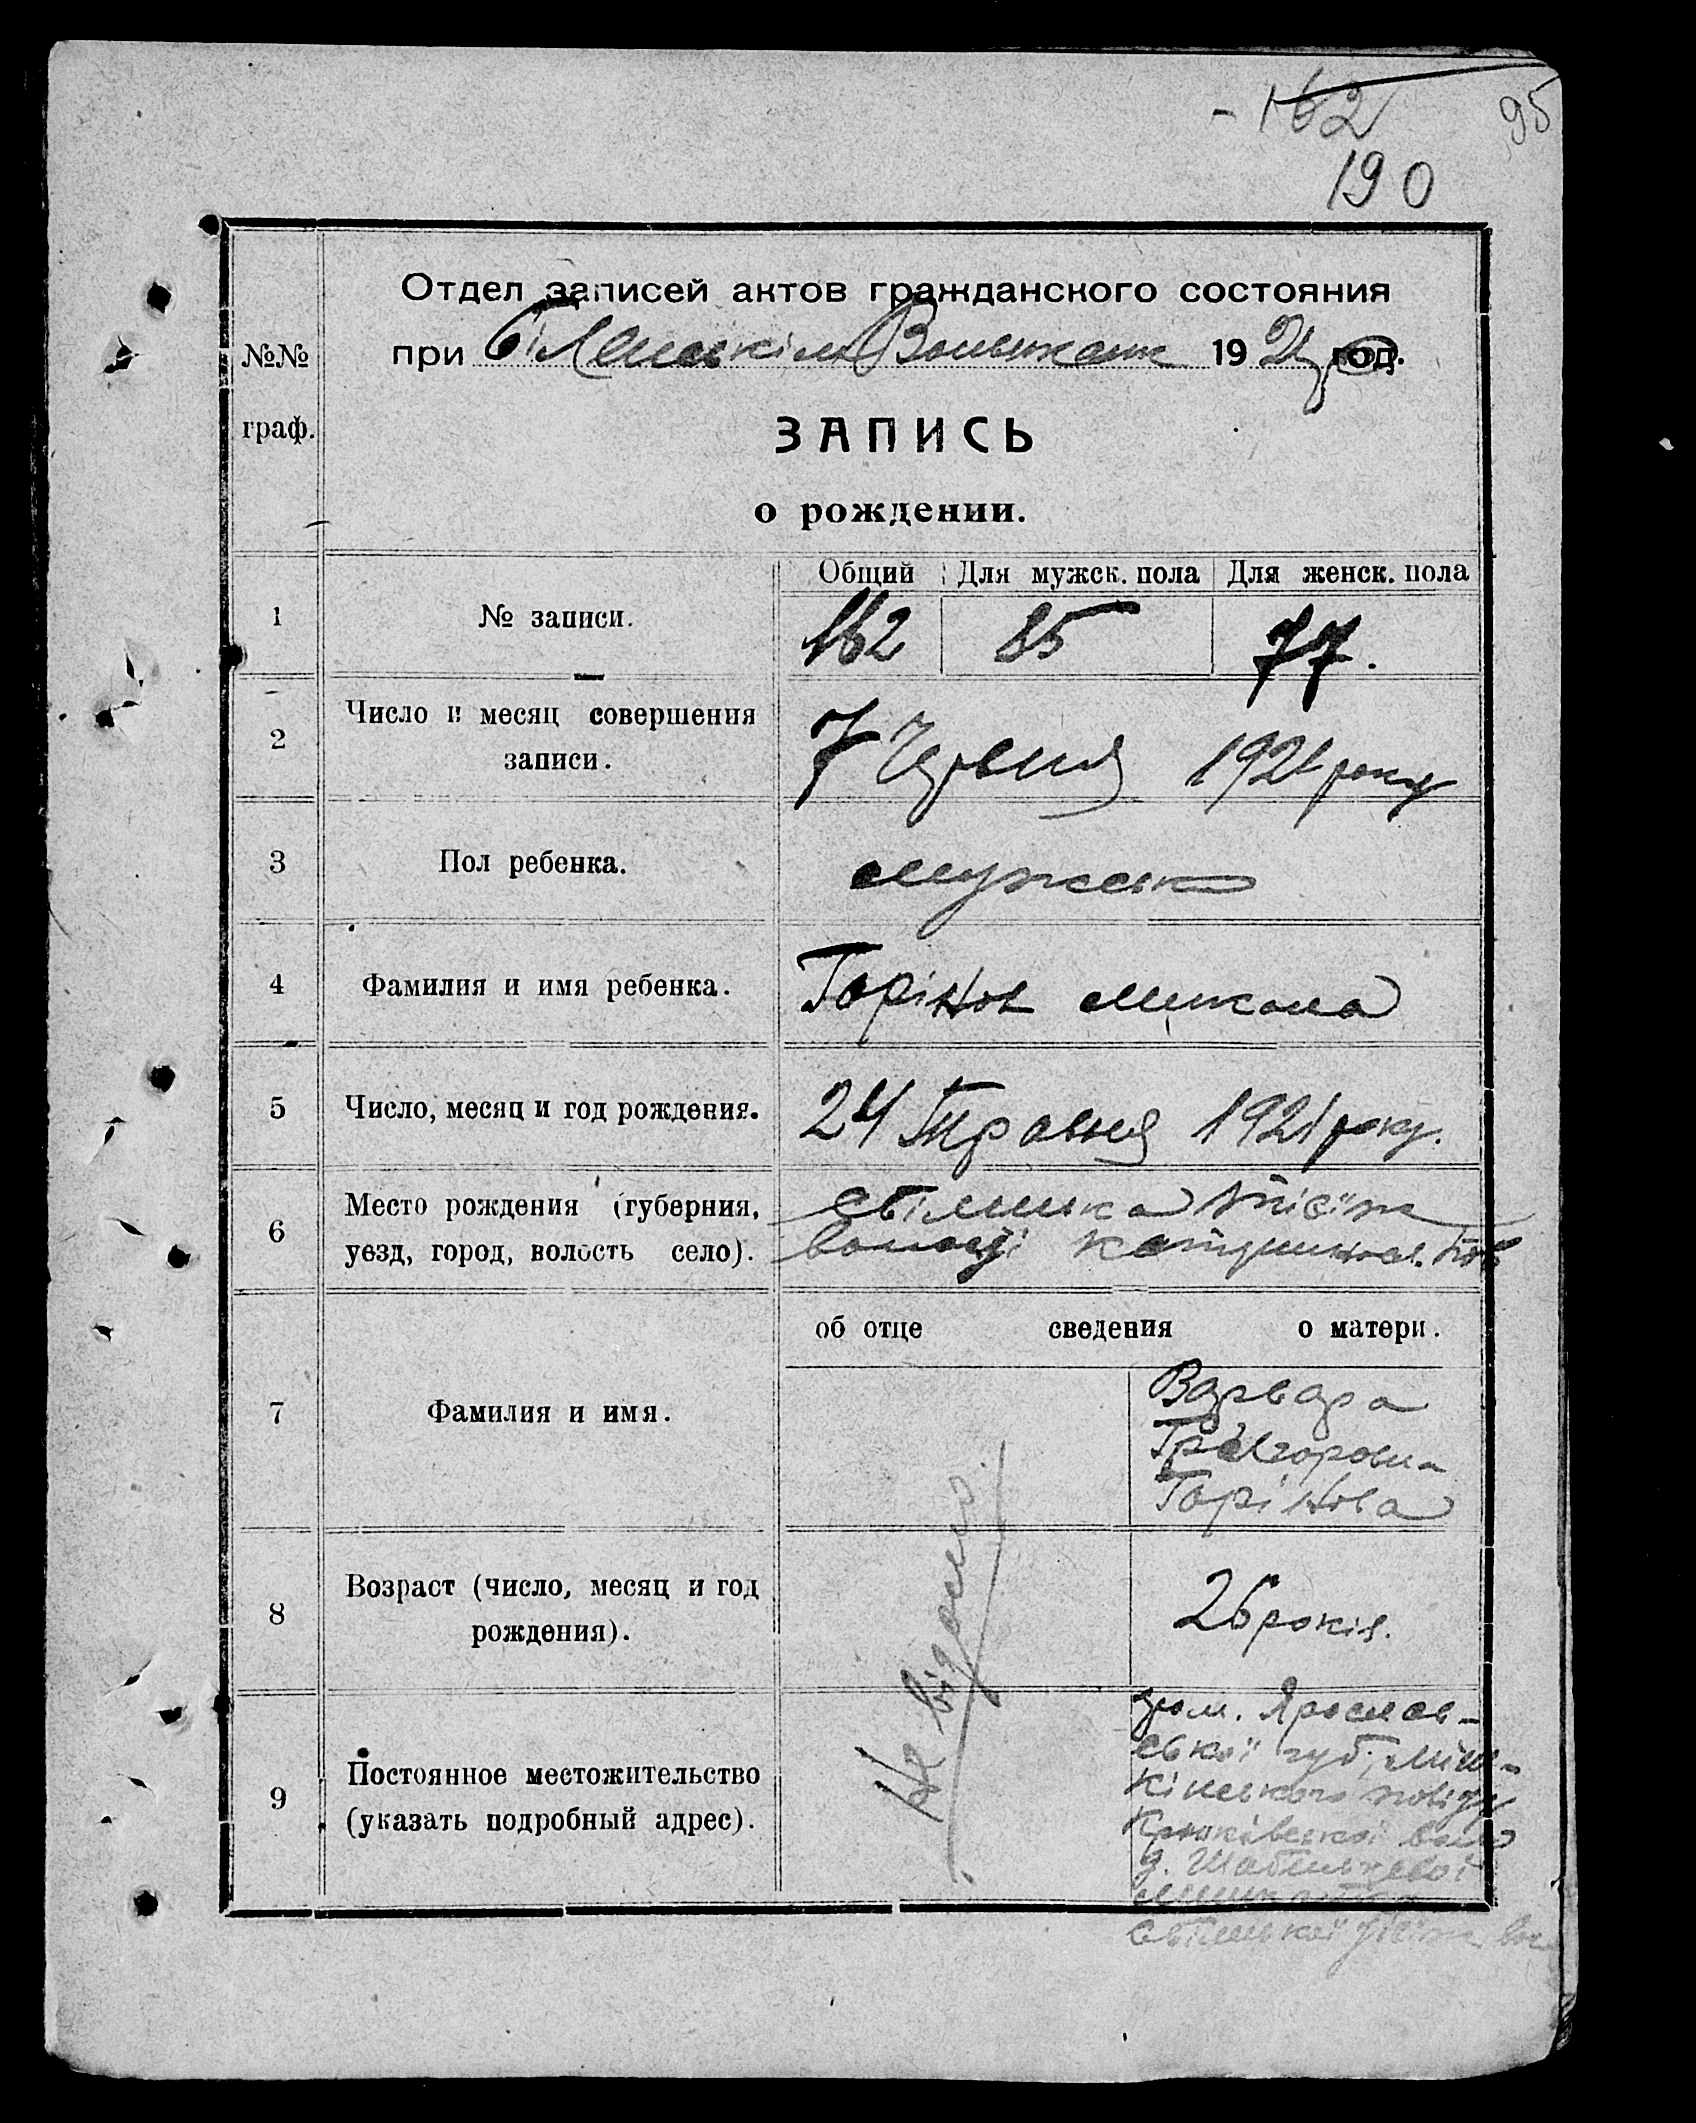 - 162
95
190
Отдел записей актов гражданского состояния
при Волвиком 1921 год.
№№
граф.
ЗАПИСЬ
о рождении.
Общий Для мужск. пола Для женск. пола
1 № записи. 162 85 77.
2 Число и месяц совершения записи. 7 Червня 1921 року
3 Пол ребенка. мужськ
4 Фамилия и имя ребенка. Горінов Микола
5 Число, месяц и год рождения. 24 Травня 1921 року.
6 Место рождения (губерния,
уезд, город, волость село). волості
об отце сведения о матери.
7 Фамилия и имя. Варвара
Григоровна
Горінова
Не відомо
8 Возраст (число, месяц и год
рождения). 26 років.
9 Постоянное местожительство
(указать подробный адрес). гром. Ярослав-
ської губ.,
повіту
д.